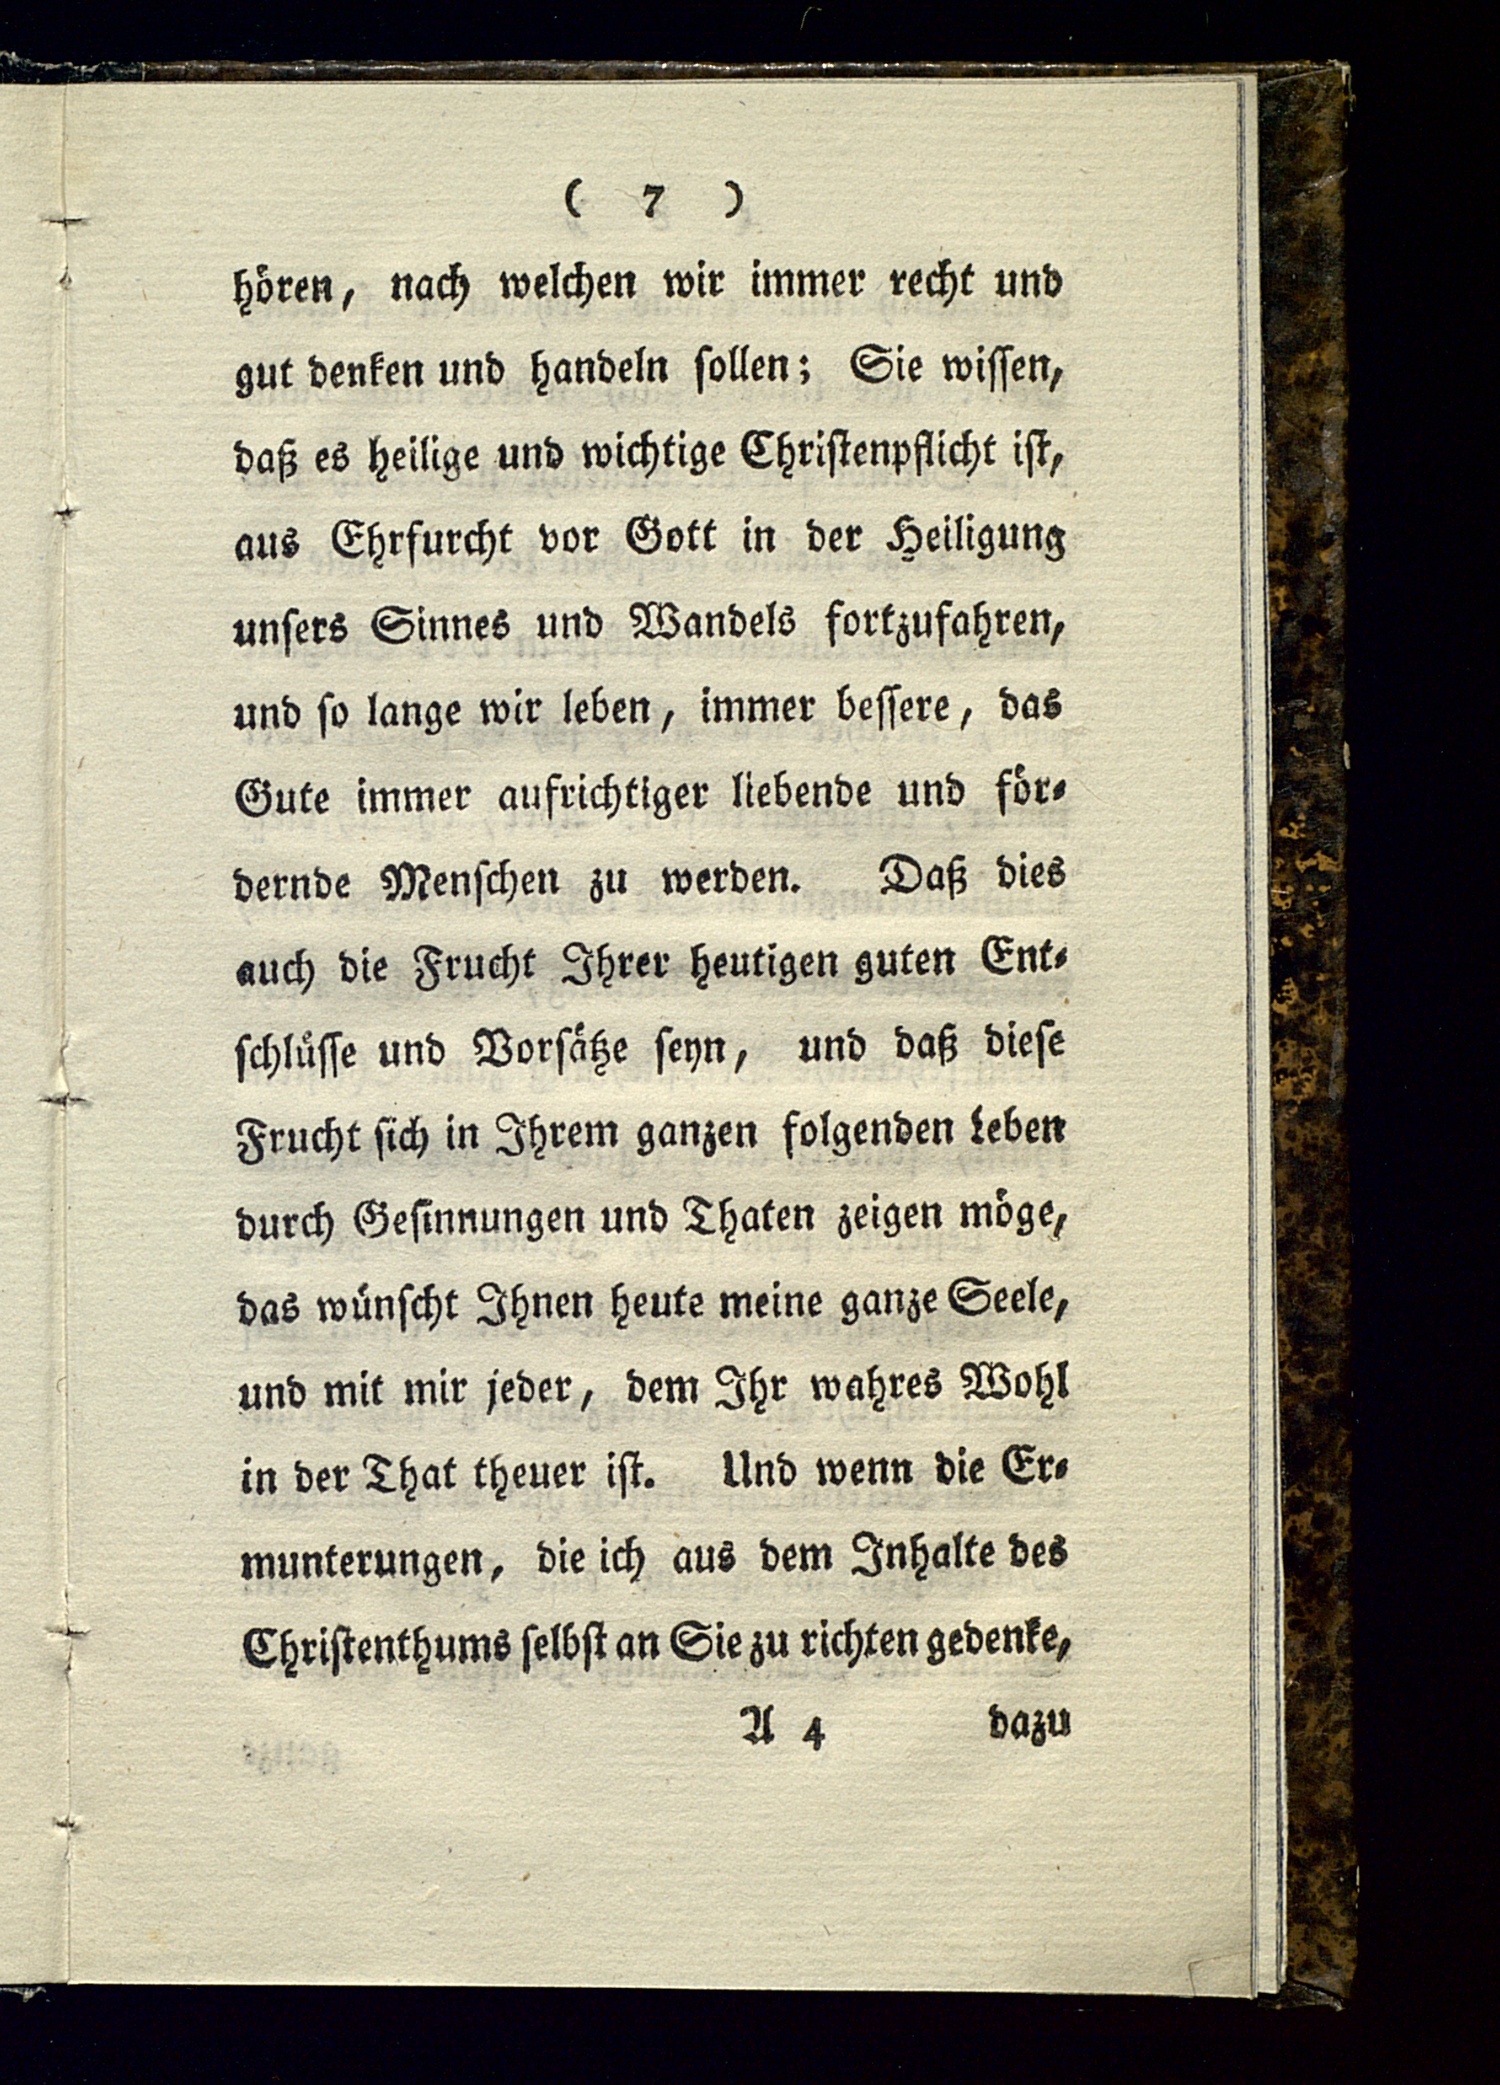 ( 7 )
hören, nach welchen wir immer recht und
gut denken und handeln sollen; Sie wissen,
daß es heilige und wichtige Christenpflicht ist,
aus Ehrfurcht vor Gott in der Heiligung
unsers Sinnes und Wandels fortzufahren,
und so lange wir leben, immer bessere, das
Gute immer aufrichtiger liebende und för-
dernde Menschen zu werden. Daß dies
auch die Frucht Ihrer heutigen guten Ent-
schlüsse und Vorsätze seyn, und daß diese
Frucht sich in Ihrem ganzen folgenden Leben
durch Gesinnungen und Thaten zeigen möge,
das wünscht Ihnen heute meine ganze Seele,
und mit mir jeder, dem Ihr wahres Wohl
in der That theuer ist. Und wenn die Er-
munterungen, die ich aus dem Inhalte des
Christenthums selbst an Sie zu richten gedenke,
A 4 dazu